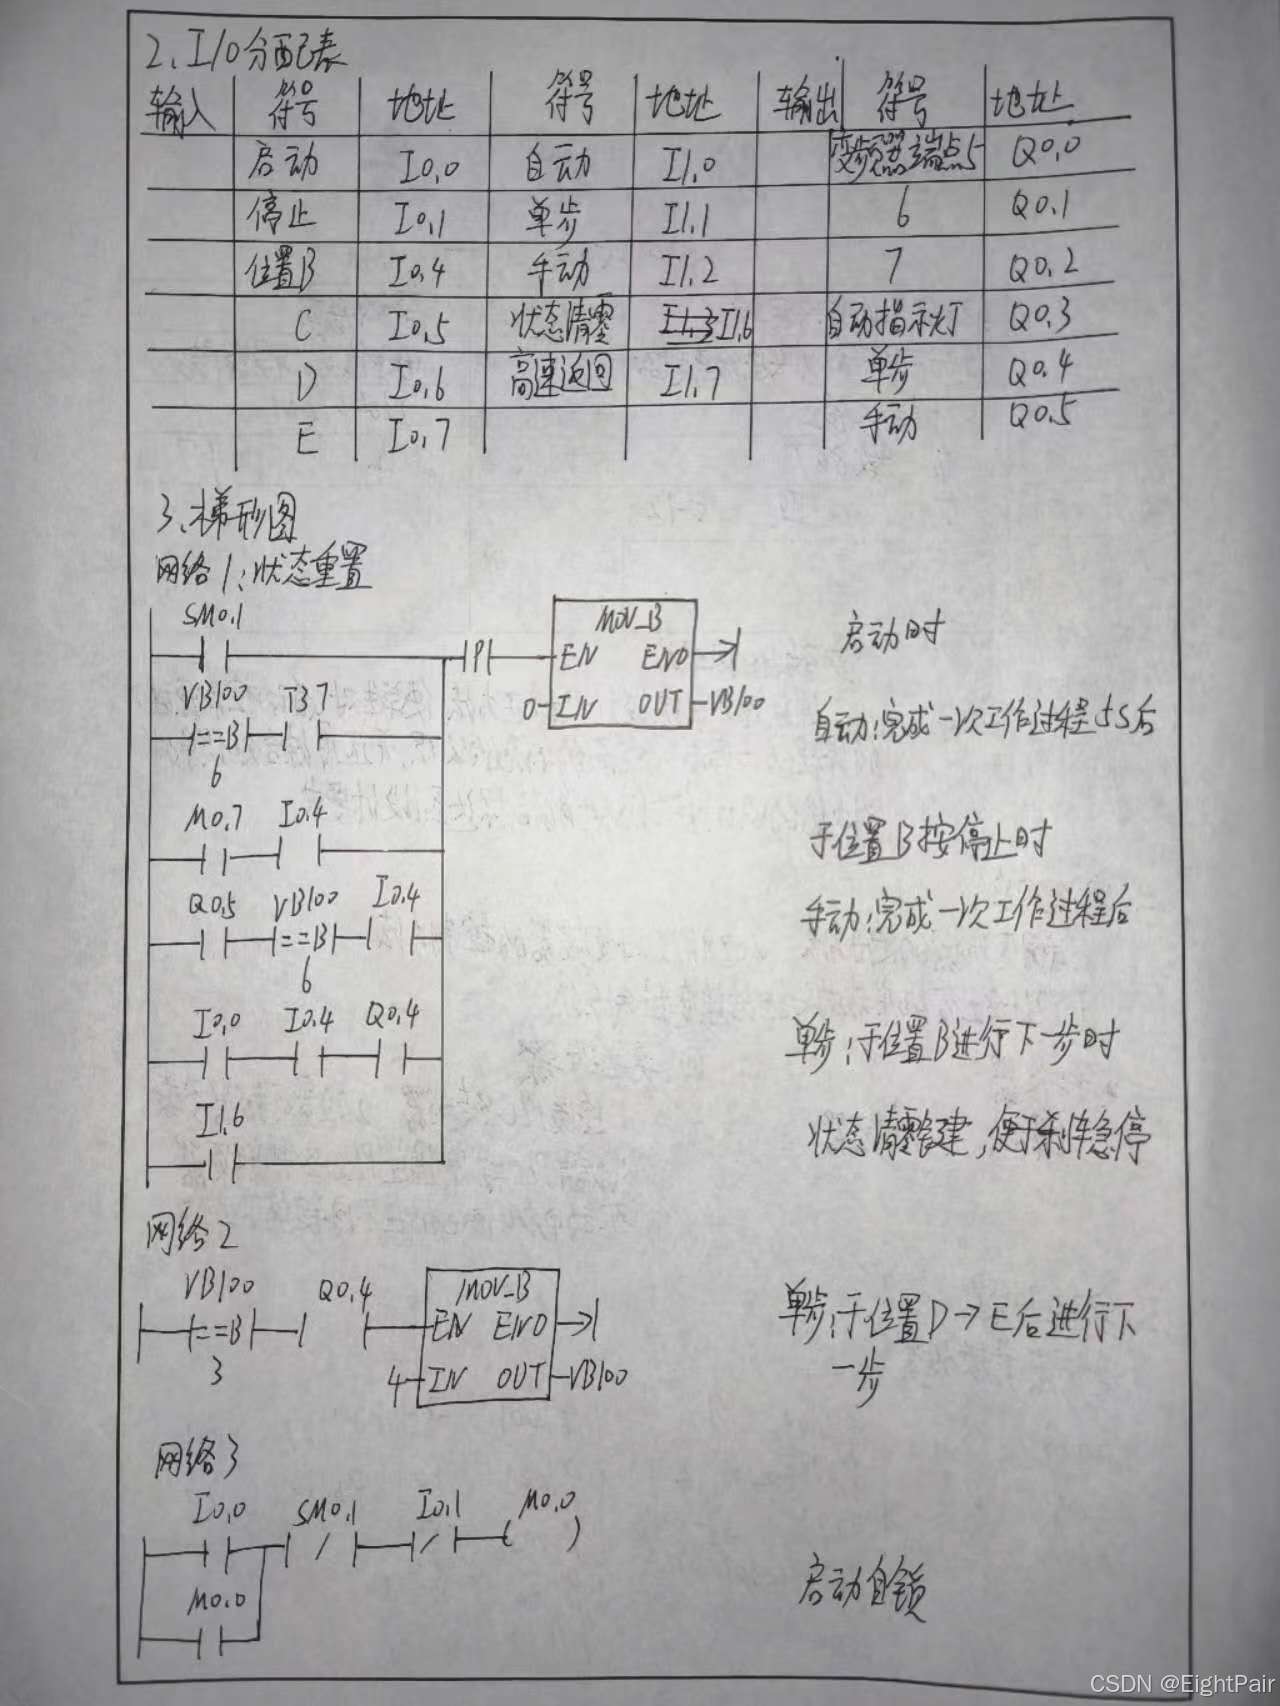 2、I/O分配表
输入 符号 地址 符号 地址 输出 符号 地址
启动 I0.0 自动 I1.0 变频器端点5 Q0.0
停止 I0.1 单步 I1.1 6 Q0.1
位置B I0.4 手动 I1.2 7 Q0.2
C I0.5 状态清零 I1.3 I1.6 自动指示灯 Q0.3
D I0.6 高速返回 I1.7 单步 Q0.4
E I0.7 手动 Q0.5
3、梯形图
网络1:状态重置
SM0.1 P MOV_B 启动时
EN ENO
VB100 T37 0 IN OUT VB100
==B 自动:完成一次工作过程5S后
6
M0.7 I0.4 于位置B按停止时
Q0.5 VB100 I0.4 手动:完成一次工作过程后
==B
6
I0.0 I0.4 Q0.4 单步:于位置B进行下一步时
I1.6 状态清零键,便于急停
网络2
VB100 Q0.4 MOV_B 单步:于位置D→E后进行下
==B EN ENO
3 4 IN OUT VB100 一步
网络3
I0.0 SM0.1 I0.1 M0.0
M0.0 启动自锁
CSDN @EightPair